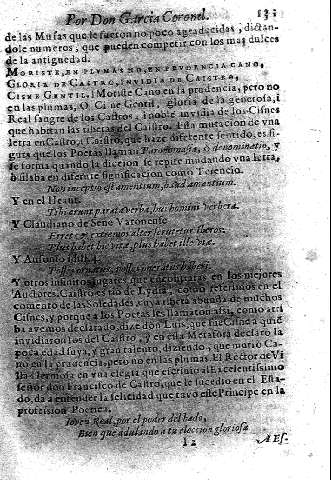 Por Don Garcia Coronel.
de las Musas que le fueron no poco agradecidas, dictan-
dole numeros, que pueden competir con los mas dulces
de la antiguedad.
MORISTE, EN PLVMAS NO, EN PRVDENCIA CANO,
GLORIA DE CASTRO, INVIDIA DE CAISTRO,
CISNE GENTIL, Moriste Cano en la prudencia, pero no
en las plumas, O Cisne Gentil, gloria de la generosa, i
Real sangre de los Castros, i noble invidia de los Cisnes
que habitan las riberas del Caistro. Esta mutacion de vna
letra en Castro, i Caistro, que haze diferente sentido, es fi-
gura que los Poetas llaman
se forma quando la dicion se repite mudando vna letra,
o silaba en diferente significacion como Terencio.
Non inceptio est amentium, haud amantium.
Y en el Heaut.
Tibi erunt parata verba, huic homini verbera.
Y Claudiano de Sene Veronense
Erret, & extremos alter scrutetur Iberos:
Plus habet hic vitæ, plus habet ille viæ.
Y Ausonio
Y otros infinitos lugares que encontraràs en los mejores
Auctores. Caistro es rio de Lydia, como referimos en el
comento de las Soledades, cuya ribera abunda de muchos
Cisnes, y porque a los Poetas les llamaron assi, como atrà
ba avemos declarado, dize don Luis, que fue Cisne a quiẽ
invidiaron los del Caistro, y en esta Metafora declarò la
poca edad suya, y gran talento, diziendo, que murio Ca-
no en la prudencia, pero no en las plumas. El Rector de Vi
lla Hermosa en vna elegia que escrivio al Excelentissimo
señor don Francisco de Castro, que le sucedio en el Esta-
do, da a entender la felicidad que tuvo este Principe en la
profession Poetica.
Ioven Real, por el poder del hado,
Bien que adulando a tu eleccion gloriosa
I 2